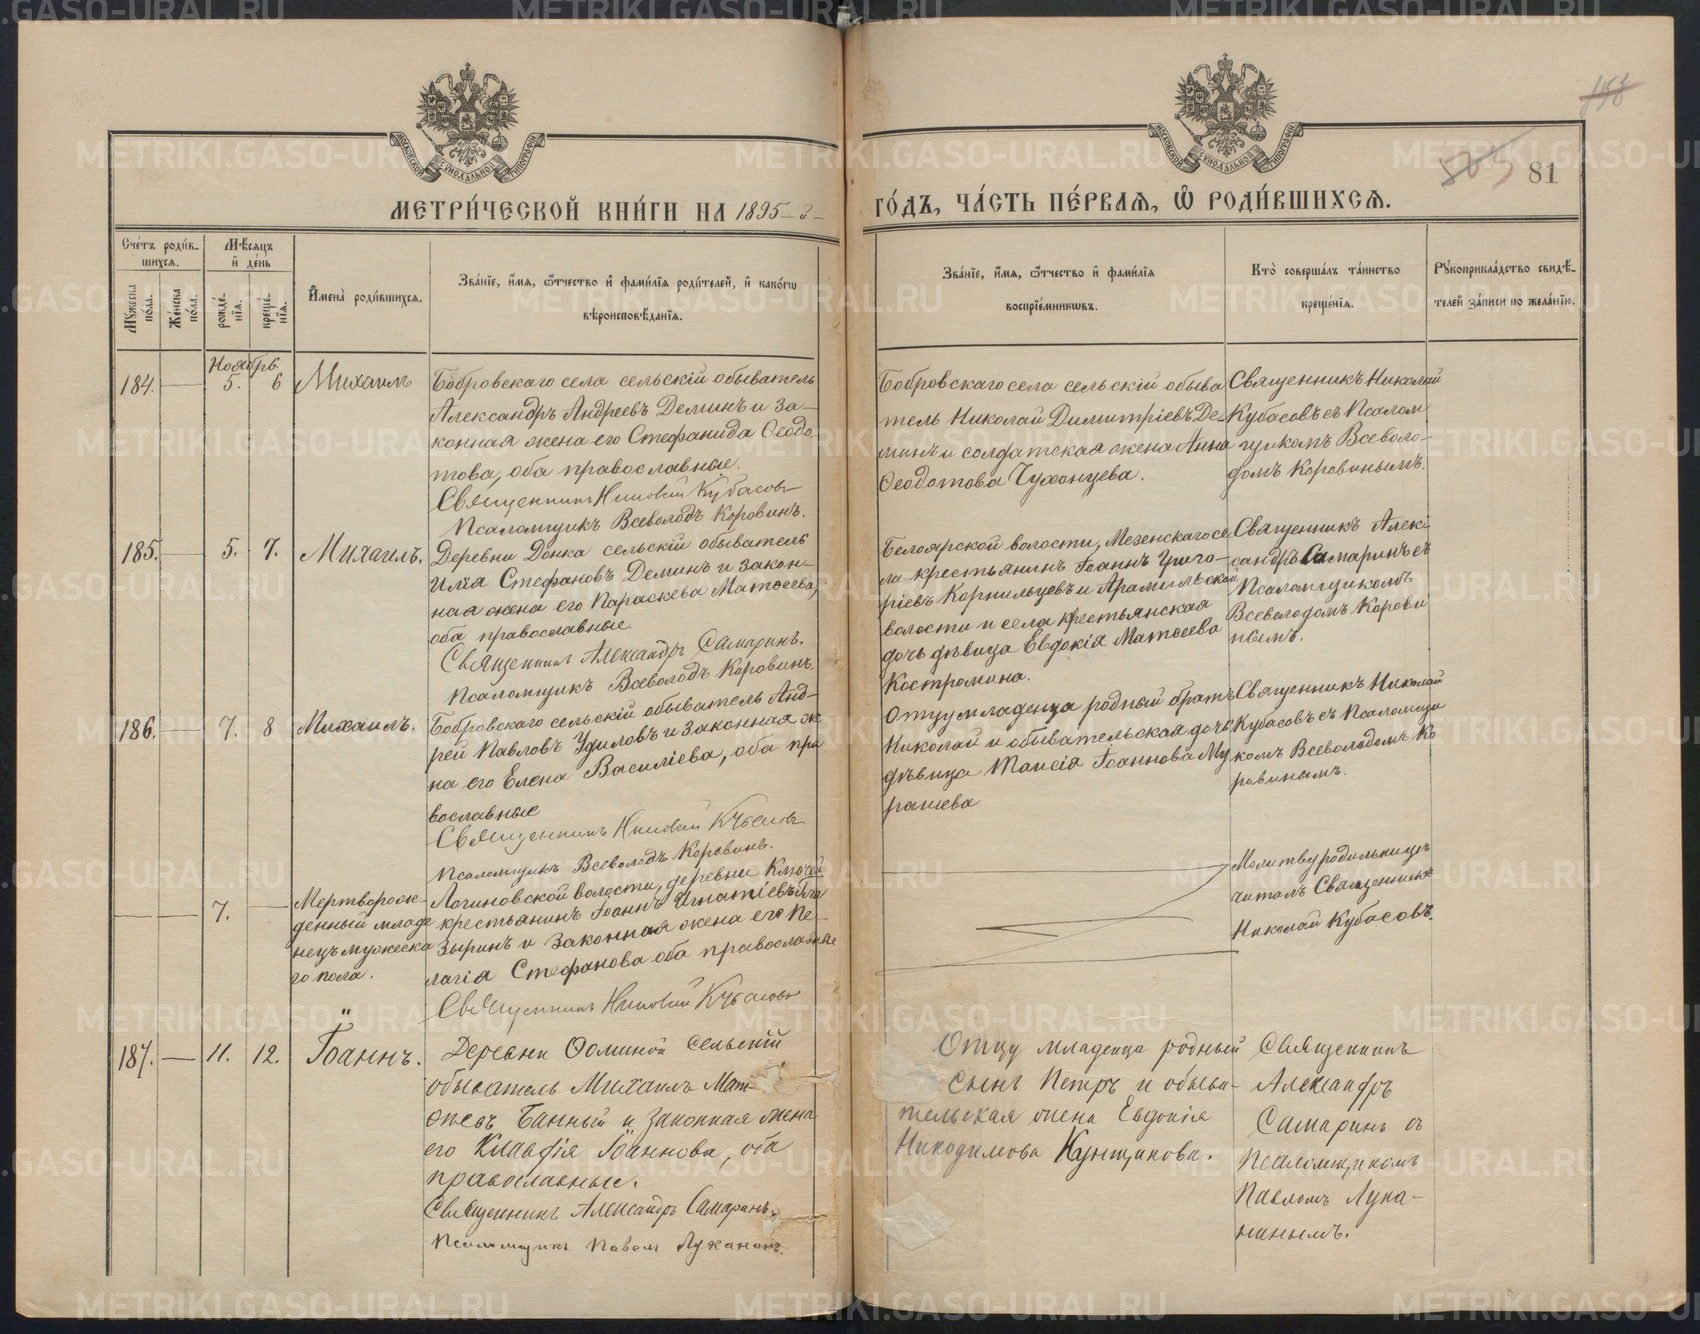 МЕТРИ́ЧЕСКОЙ КНИ́ГИ НА 1895-й
ГО́ДЪ, ЧА́СТЬ ПЕ́РВАѦ, Ѡ҆ РОДИ́ВШИХСѦ.
81
Сче́тъ роди́в-
шихсѧ.
Мꙋ́жеска
по́ла.
Же́нска
по́ла.
Мѣ́сѧцъ
и҆ де́нь
рожде́-
нїѧ.
креще́-
нїѧ.
И҆мена̀ роди́вшихсѧ.
Зва́нїе, и҆́мѧ, ѻ҆́тчество и҆ фами́лїѧ роди́телей, и҆ како́гѡ
вѣроисповѣ́данїѧ.
Зва́нїе, и҆́мѧ, ѻ҆́тчество и҆ фами́лїѧ
воспрїе́мникѡвъ.
Кто̀ соверша́лъ та́инство
креще́нїѧ.
Рꙋкоприкла́дство свидѣ́-
телей за́писи по жела́нїю.
Ноябрь
184. 5. 6 Михаилъ
Бобровскаго села сельскій обыватель
Александръ Андреевъ Деминъ и за-
конная жена его Стефанида Ѳеодо
това, оба православные.
Священникъ Николай Кубасовъ
Псаломщикъ Всеволодъ Коровинъ.
Бобровскаго села сельскій обыва
тель Николай Димитріевъ Де-
минъ и солдатская жена Анна
Ѳеодотова Чухонцева.
Священникъ Николай
Кубасовъ съ Псалом
щикомъ Всеволо-
домъ Коровинымъ.
185. 5. 7. Михаилъ.
Деревни сельскій обыватель
Илія Стефановъ Деминъ и закон-
ная жена его Параскева Матѳеева,
оба православные.
Священникъ Александръ Самаринъ.
Псаломщикъ Всеволодъ Коровинъ.
Белоярской волости, Мезенскаго се
ла крестьянинъ Іоаннъ Григо-
ріевъ Корнильцевъ и Арамильской
волости и села крестьянская
дочь дѣвица Евдокія Матѳеева
Костромина.
Священникъ Алек-
сандръ Самаринъ съ
Псаломщикомъ
Всеволодомъ Корови
нымъ.
186. 7. 8 Михаилъ.
Бобровскаго сельскій обыватель Анд-
рей Павловъ Удиловъ и законная же
на его Елена Василіева, оба пра
вославные
Священникъ Николай Кубасовъ
Псаломщикъ Всеволодъ Коровинъ.
Отцу младенца родный братъ
Николай и обывательская дочь
дѣвица Таисія Іоаннова Му
рашева
Священникъ Николай
Кубасовъ съ Псаломщи
комъ Всеволодомъ Ко
ровинымъ.
7. Мертворож-
денный младе
нецъ мужеска
го пола.
Логиновской волости, деревни Ключей
крестьянинъ Іоаннъ Игнатіевъ
и законная жена его Пе-
лагія Стефанова оба православные
Священникъ Николай Кубасовъ
Молитву родильницѣ
читалъ Священникъ
Николай Кубасовъ.
187. 11. 12. Іоаннъ.
Деревни Ѳоминой сельскій
обыватель Михаилъ Мат
ѳѣевъ Банный и законная жена
его Клавдія Іоаннова, оба
православные.
Священникъ Александръ Самаринъ.
Псаломщикъ Павелъ Луканинъ.
Отцу младенца родный
сынъ Петръ и обыва-
тельская жена Евдокія
Никодимова Кунщикова.
Священникъ
Александръ
Самаринъ съ
Псаломщикомъ
Павломъ Лука-
нинымъ.